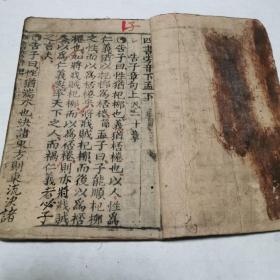 四書旁音下孟下
告子章句上凡二十章
告子曰性猶杞柳也義猶桮棬也以人性爲
仁義猶以杞柳爲桮棬孟子曰子能順杞柳
之性而以爲桮棬乎將戕賊杞柳而後以爲桮
棬也如將戕賊杞柳而以爲桮棬則亦將戕賊
人以爲仁義與率天下之人而禍仁義者必子
之言夫
告子曰性猶湍水也決諸東方則東流決諸